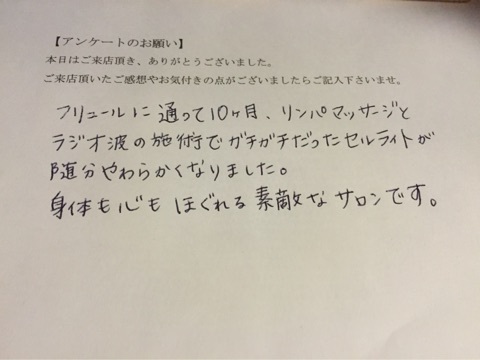 【アンケートのお願い】
本日はご来店頂き、ありがとうございました。
ご来店頂いたご感想やお気付きの点がございましたらご記入下さいませ。
フリュールに通って10ヶ月、リンパマッサージと
ラジオ波の施術でガチガチだったセルライトが
随分やわらかくなりました。
身体も心もほぐれる素敵なサロンです。